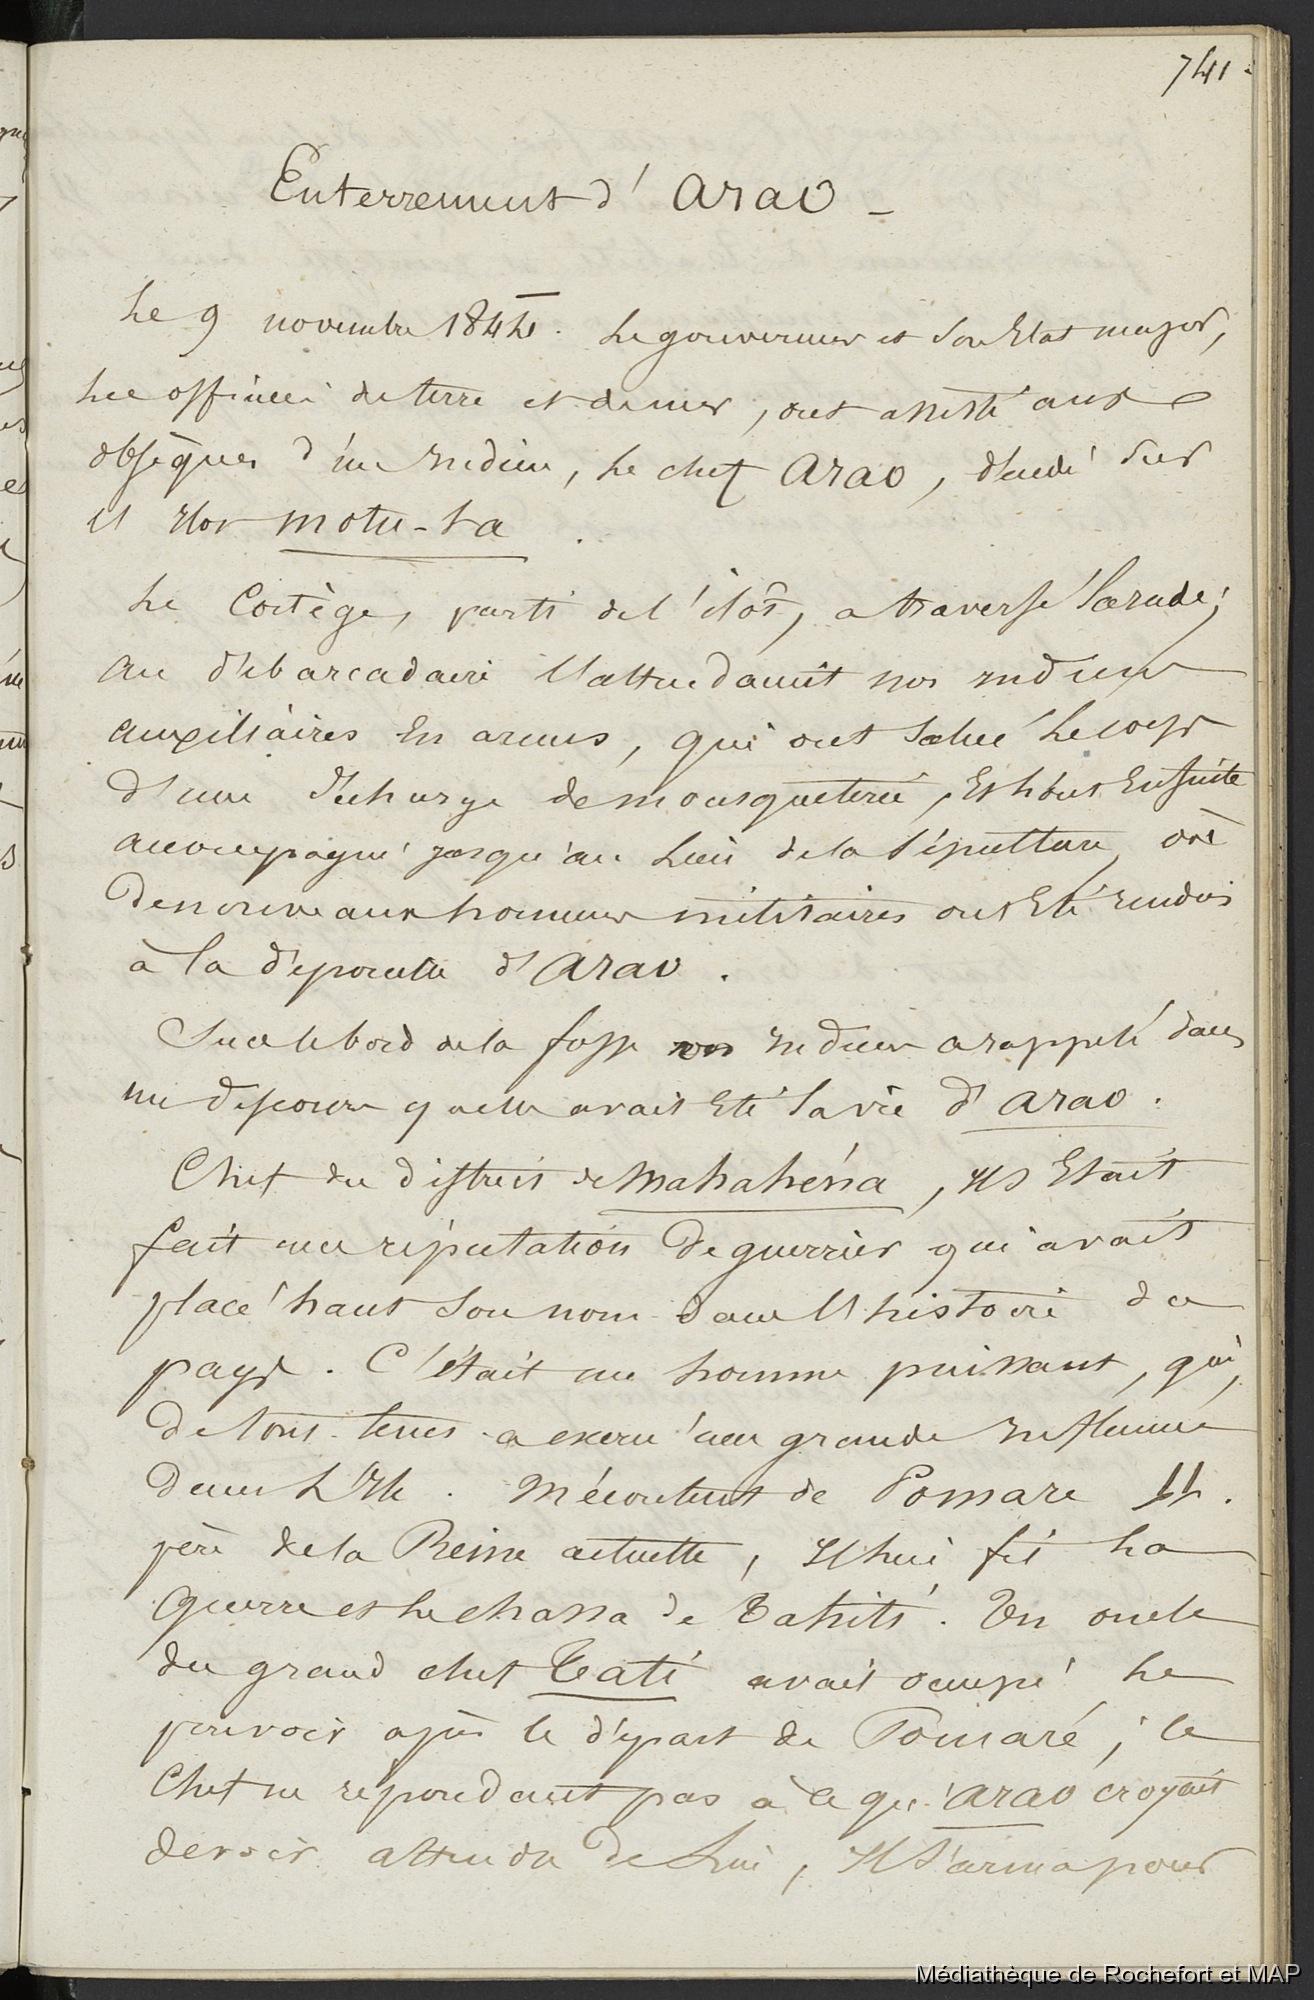 741.
Enterrement d'Arao_
Le 9 novembre 1844. Le gouverneur et son Etat major,
Les officiers de terre et de mer, ont assisté aux
obsèques d'un Indien, le chef Arao, décédé sur
l'Ilot Motu-ta.
Le Cortège, parti de l'ilôt, a traversé la rade;
au débarcadaire l'attendaient nos indiens
auxiliaires En armes, qui ont salué le corps
d'une décharge de mousqueterie, Et l'ont Ensuite
accompagné jusqu'au lieu de la sépulture, où
de nouveaux honneurs militaires ont Eté rendus
à la dépouille d'Arao.
Sur le bord de la fosse un Indien a rappelé dans
un discours quelle avait Eté la vie d'Arao.
Chef du district de Mahahéna, Il s'Etait
fait une réputation de guerrier qui avait
placé haut son nom dans l'histoire du
pays. C'était un homme puissant, qui,
de tous tems a exercé une grande Influence
dans L'Ile. Mécontent de Pomare II.
père de la Reine actuelle, Il lui fit la
guerre et le chassa de Tahiti. Un oncle
du grand chef Tati avait occupé le
pouvoir après le départ de Pomaré; le
Chef ne répondant pas à ce qu'Arao croyait
devoir attendre de Lui, Il s'arma pour
Médiathèque de Rochefort et MAP